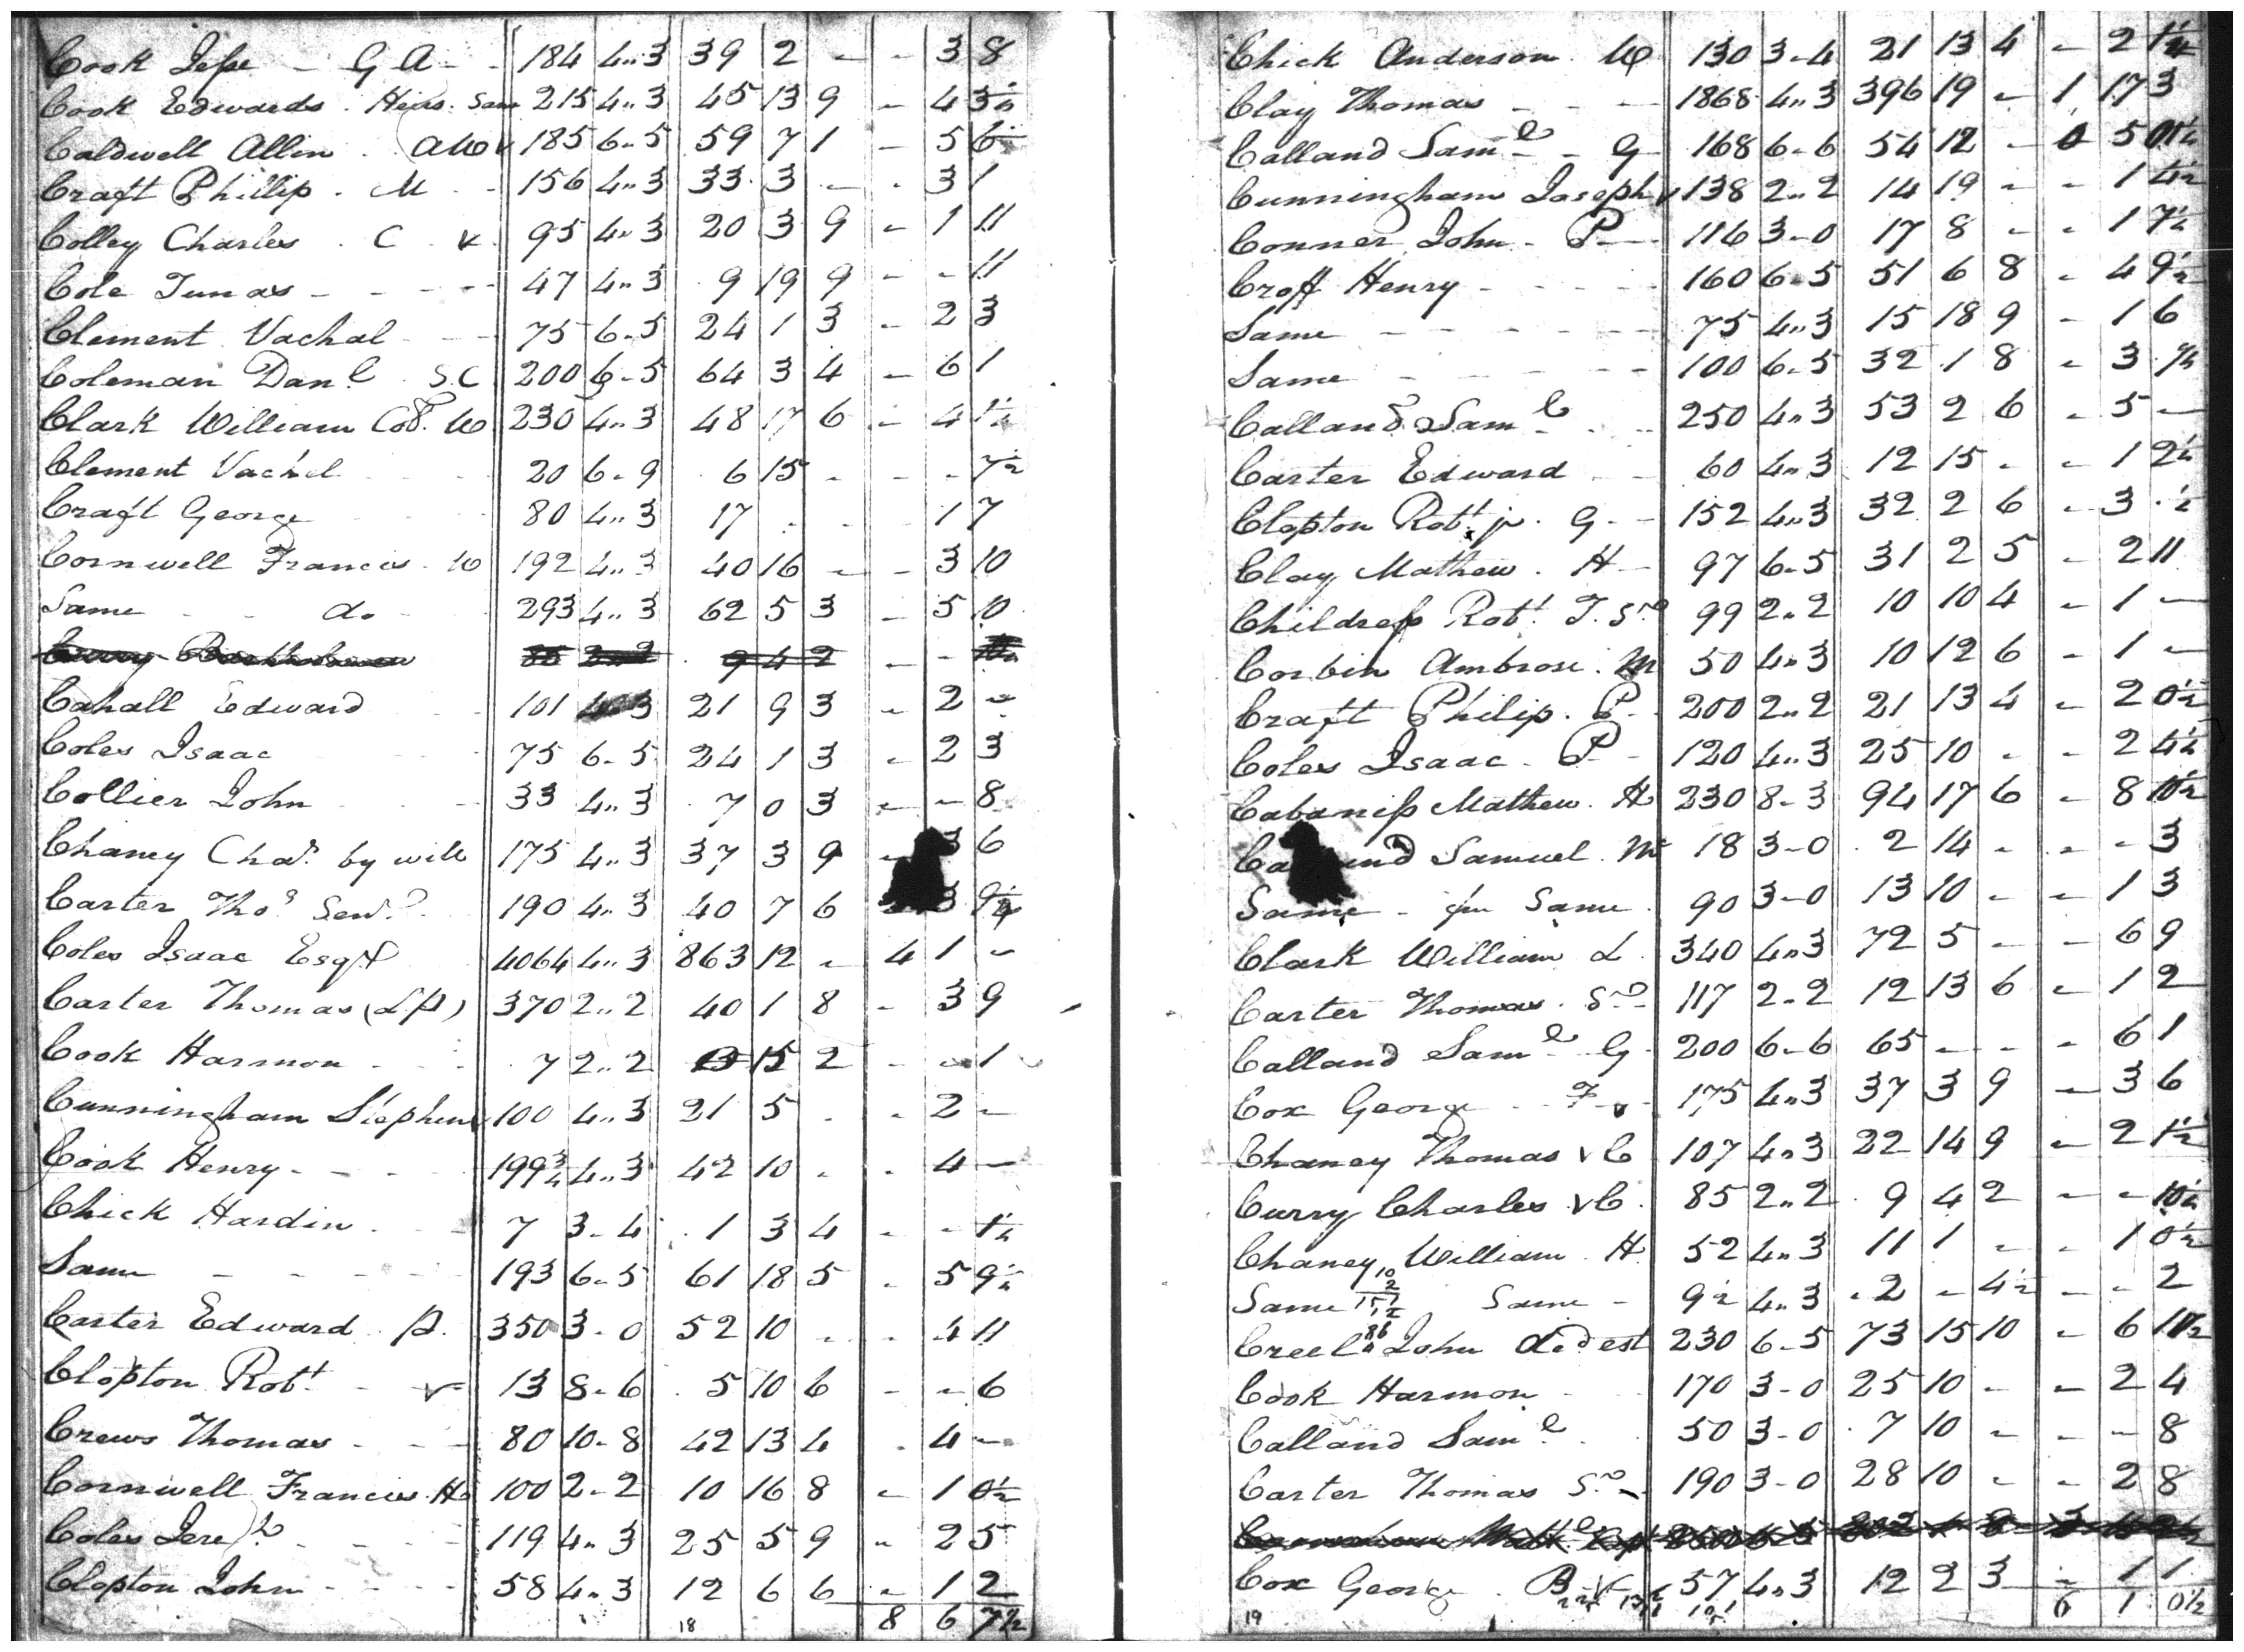 Cook Jesse - G A - - 184 4..3 39 2 - - 3 8
Cook Edwards. Heirs. Sam 215 4..3 45 13 9 - 4 3½
Caldwell Allin. AW v 185 6-5 59 7 1 - 5 6
Craft Phillip. M - 156 4..3 33 3 - - 3 1
Colley Charles. C. v. 95 4..3 20 3 9 - 1 11
Cole Tunax - - - - 47 4..3 9 19 9 - - 11
Clement Vachal - - 75 6-5 24 1 3 - 2 3
Coleman Danl. S.C 200 6-5 64 3 4 - 6 1
Clark William Col. W 230 4..3 48 17 6 - 4 1½
Clement Vachel 20 6-9 6 15 - - - 7½
Craft George 80 4..3 17 - - - 1 7
Cornwell Francis. W 192 4..3 40 16 - - 3 10
Same - - do - 293 4..3 62 5 3 - 5 10
85 2..2 9 4 2 - -
Cahall Edward 101 4..3 21 9 3 - 2 -
Coles Isaac 75 6-5 24 1 3 - 2 3
Collier John 33 4..3 7 0 3 - - 8
Chaney Chas. by will 175 4..3 37 3 9 - 3 6
Carter Thos. 190 4..3 40 7 6 3 9¼
Coles Isaac Esqr 4064 4..3 863 12 - 4 1 -
Carter Thomas (LP) 370 2..2 40 1 8 - 3 9
Cook Harmon - - - 7 2..2 15 2 - - 1
Cunningham Stephen 100 4..3 21 5 - - 2 -
Cook Henry - - - 199¾ 4..3 42 10 - - 4 -
Chick Hardin - - 7 3-4 1 3 4 - - 1½
Same - - - - 193 6-5 61 18 5 - 5 9½
Carter Edward. P. 350 3-0 52 10 - - 4 11
Clopton Robt - v 13 8-6 5 10 6 - - 6
Crews Thomas - - - 80 10-8 42 13 4 - 4 -
Cornwell Francis. H 100 2-2 10 16 8 - 1 0½
Coles Jereh. - - - 119 4..3 25 5 9 - 2 5
Clopton John - - - - 58 4..3 12 6 6 - 1 2
18 8 6 7½
Chick Anderson. W 130 3-4 21 13 4 - 2 1¼
Clay Thomas - - - 1868 4..3 396 19 - 1 17 3
Calland Saml - G 168 6-6 54 12 - 0 5 0½
Cunningham Joseph v 138 2..2 14 19 - - 1 4½
Conner John - P - 116 3-0 17 8 - - 1 7½
Croft Henry - - - - 160 6-5 51 6 8 - 4 9½
Same - - - - - - 75 4..3 15 18 9 - 1 6
Same - - - - - 100 6-5 32 1 8 - 3 ½
Calland Saml - - 250 4..3 53 2 6 - 5 -
Carter Edward - - 60 4..3 12 15 - - 1 2½
Clopton Robt jr. G - - 152 4..3 32 2 6 - 3 ½
Clay Mathew. H - 97 6-5 31 2 5 - 2 11
Childress Robt. T. Sr 99 2..2 10 10 4 - 1 -
Corbin Ambrose. M 50 4..3 10 12 6 - 1 -
Craft Philip. P - 200 2..2 21 13 4 - 2 0½
Coles Isaac. P - 120 4..3 25 10 - - 2 4½
Cabaniss Mathew. H 230 8-3 94 17 6 - 8 10½
Calland Samuel. M 18 3-0 2 14 - - - 3
Same - fm Same 90 3-0 13 10 - - 1 3
Clark William L. 340 4..3 72 5 - - 6 9
Carter Thomas. Sr - 117 2-2 12 13 6 - 1 2
Calland Saml G. 200 6-6 65 - - - 6 1
Cox George - F v - 175 4..3 37 3 9 - 3 6
Chaney Thomas v C 107 4..3 22 14 9 - 2 1½
Curry Charles v C. 85 2..2 9 4 2 - - 10½
Chaney William. H. 52 4..3 11 1 - - 1 0½
Same Same - 9½ 4..3 2 - 4½ - - 2
Creel John 230 6-5 73 15 10 - 6 11½
Cook Harmon 170 3-0 25 10 - - 2 4
Calland Saml. 50 3-0 7 10 - - - 8
Carter Thomas Sr - 190 3-0 28 10 - - 2 8
Cox George. B - v - 57 4..3 12 2 3 - 1 1
19 6 1 0½